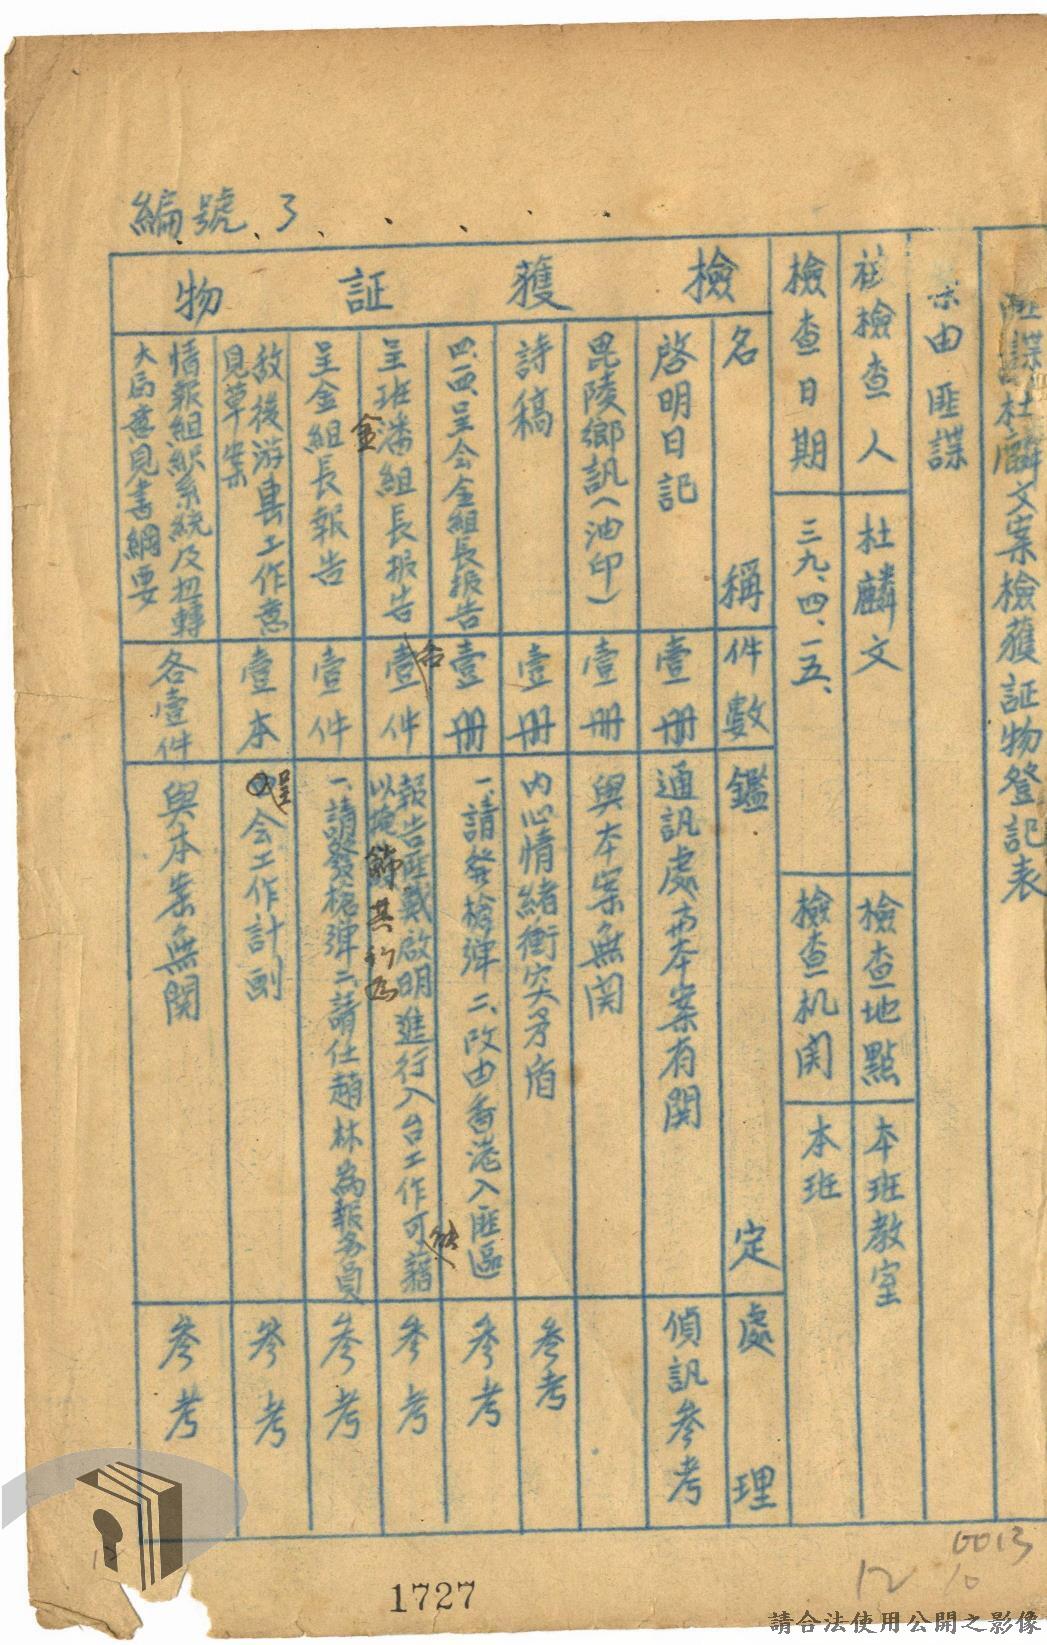 編號 3
匪諜杜麟文案檢獲証物登記表
案由 匪諜
被檢查人 杜麟文 檢查地點 本班教室
檢查日期 三九、四、一五、 檢查机関 本班
檢獲証物
名稱 件數 鑑定 處理
啓明日記 壹冊 通訊處与本案有関 偵訊參考
毘陵鄉訊（油印） 壹冊 與本案無関
詩稿 壹冊 內心情緒衝突矛盾 參考
四、一四、呈会金組長報告 壹冊 一、請發槍彈 二、改由香港入匪區 參考
呈班潘組長報告 壹件 報告匪戴啟明進行入台工作可藉
以掩飾其行為 參考
呈金組長報告 壹件 一、請發槍彈 二、請任趙林為報務員 參考
敌後游擊工作意
見草案 壹本 呈会工作計劃 參考
情報組織系統及扭轉
大局意見書綱要 各壹件 與本案無関 參考
1727
0013
12
10
請合法使用公開之影像